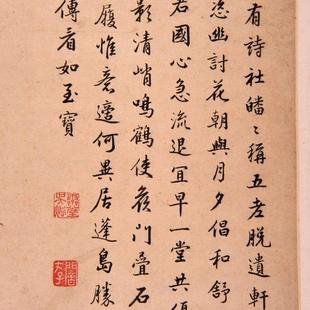 有詩社皤〻稱五老脱遺軒
恣幽討花朝與月夕倡和舒
若國心急流退宜早一堂共
影清峭鳴鶴使侯門疊石
履惟意適何異居蓬島勝
傳看如至寶